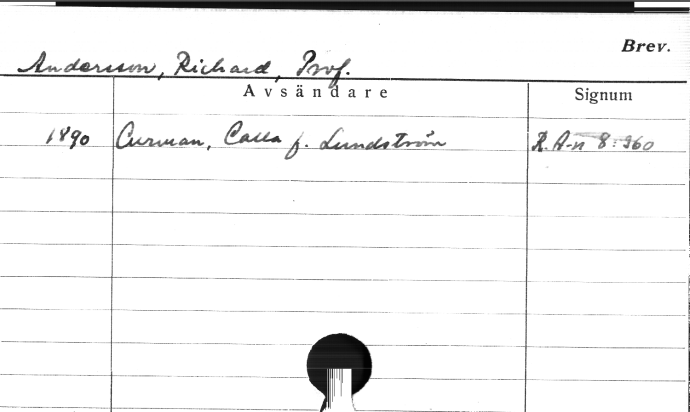 Brev.
Andersson, Richard, Prof.
Avsändare Signum
1890 Curman, Calla f. Lundström R. A-n 8:360